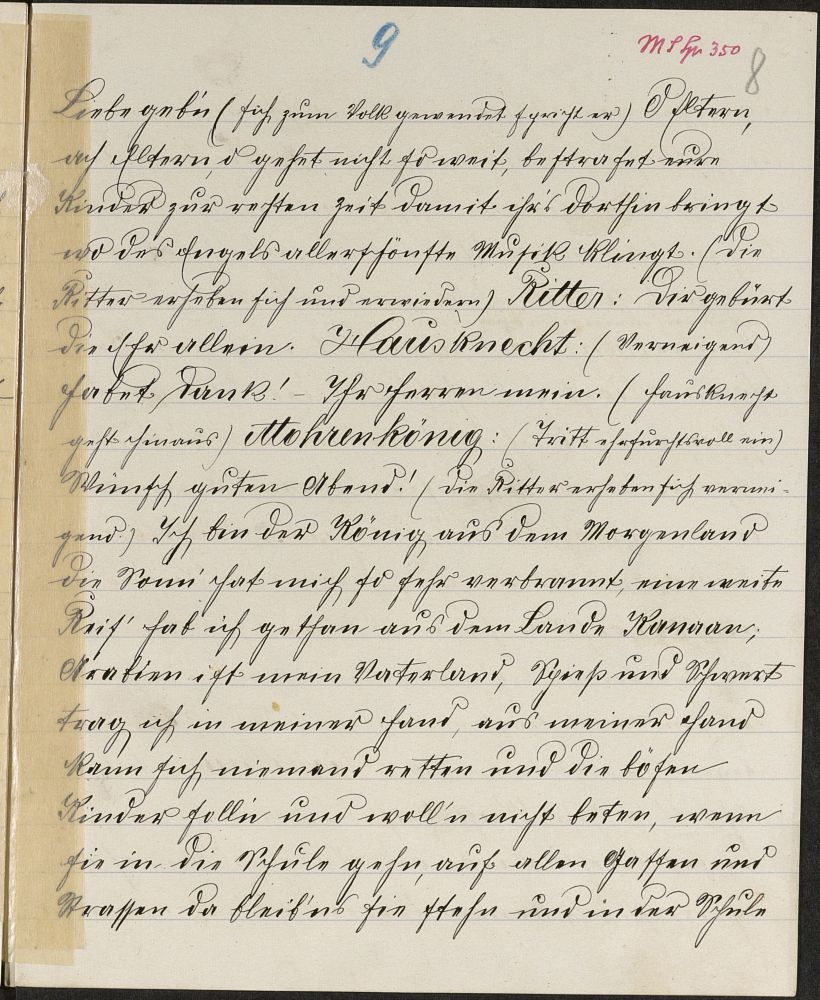 9
MS Spr 350
8
Liebe geb'n (sich zum Volk gewendet spricht er) O Eltern,
ach Eltern, o gehet nicht so weit, bestrafet eure
Kinder zur rechten Zeit damit ihr's dorthin bringt
wo des Engels allerschönste Musik klingt. (Die
Ritter erheben sich und erwiedern) Ritter: Dir gebürt
die Ehr allein. Hausknecht: (Verneigend)
habet Dank! – Ihr Herren mein. (Hausknecht
geht hinaus) Mohrenkönig: (Tritt ehrfurchtsvoll ein)
Wünsch guten Abend! (Die Ritter erheben sich vernei-
gend.) Ich bin der König aus dem Morgenland
die Sonn' hat mich so sehr verbrannt, eine weite
Reis' hab ich gethan aus dem Lande Kanaan;
Arabien ist mein Vaterland, Spieß und Schwert
trag ich in meiner Hand, aus meiner Hand
kann sich niemand retten und die bösen
Kinder soll'n und woll'n nicht beten, wenn
sie in die Schule gehn, auf allen Gassen und
Strassen da bleib'ns sie stehn und in der Schule